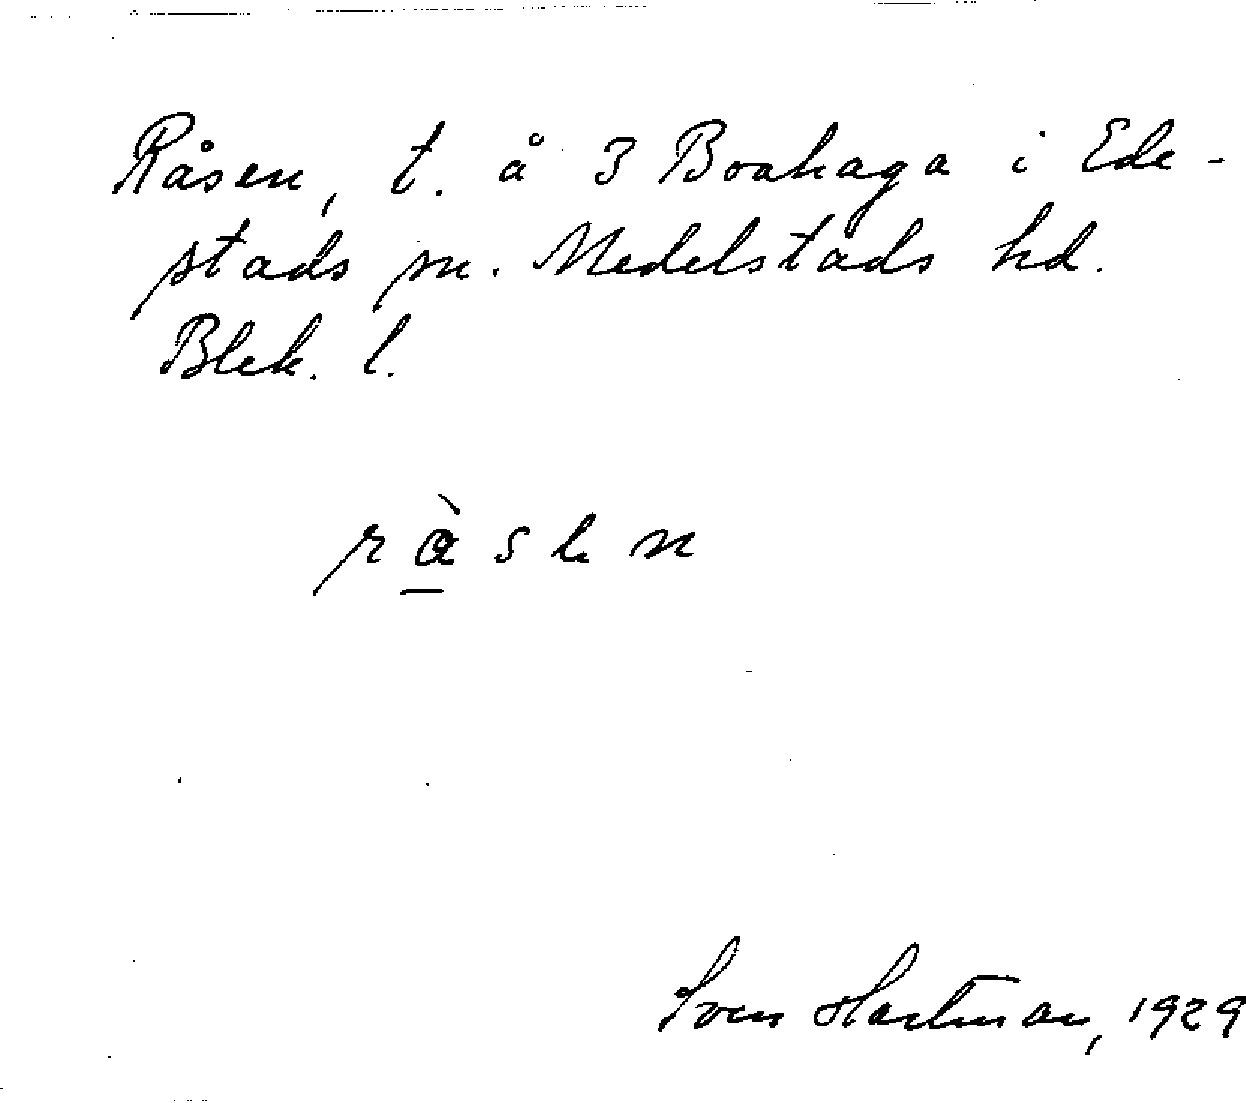 Råsen, t. å 3 Boahaga i Ede-
stads sn. Medelstads hd.
Blek. l.
Sven Hartman, 1929